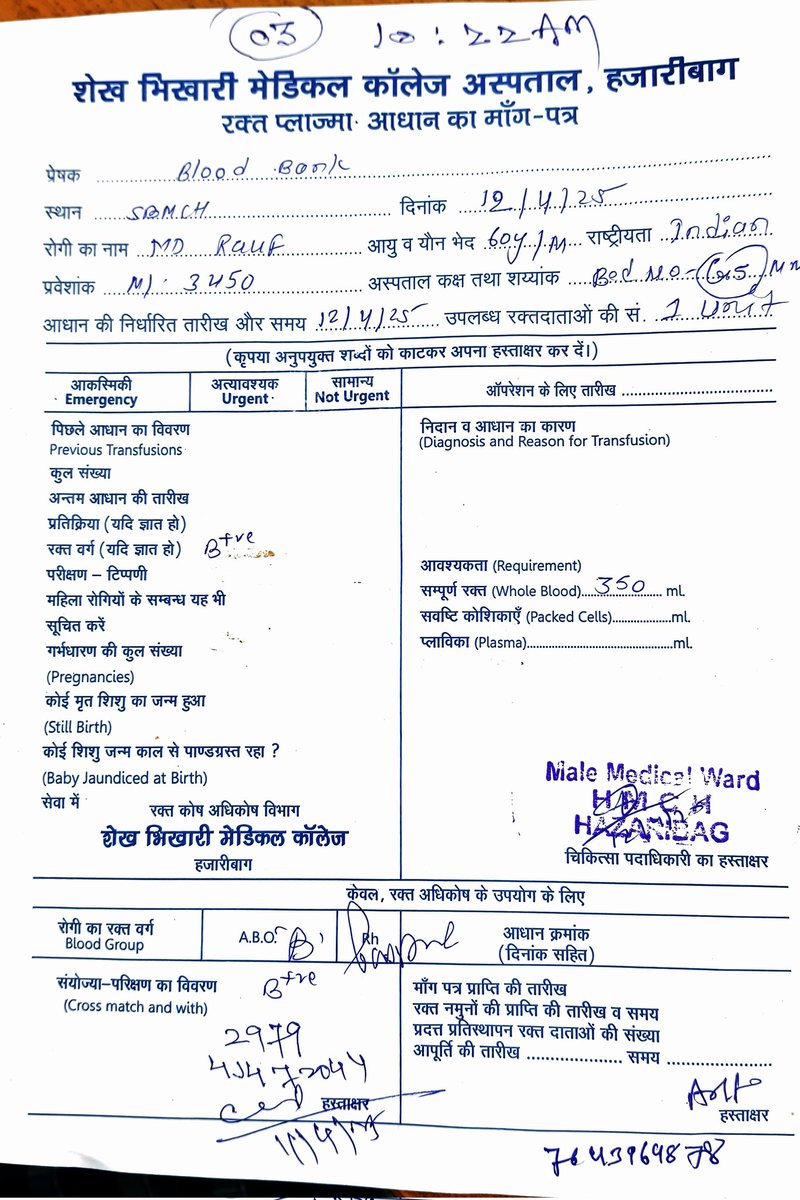 03 10:22 AM
शेख भिखारी मेडिकल कॉलेज अस्पताल, हजारीबाग
रक्त प्लाज्मा आधान का माँग-पत्र
प्रेषक Blood Bank
स्थान SBMCH दिनांक 12/4/25
रोगी का नाम MD Rauf आयु व यौन भेद 60y/M राष्ट्रीयता Indian
प्रवेशांक M/. 3450 अस्पताल कक्ष तथा शय्यांक Bed No-
आधान की निर्धारित तारीख और समय 12/4/25 उपलब्ध रक्तदाताओं की सं. 1 Unit
(कृपया अनुपयुक्त शब्दों को काटकर अपना हस्ताक्षर कर दें।)
आकस्मिकी अत्यावश्यक सामान्य ऑपरेशन के लिए तारीख
Emergency Urgent Not Urgent
पिछले आधान का विवरण
Previous Transfusions
कुल संख्या
अन्तम आधान की तारीख
प्रतिक्रिया (यदि ज्ञात हो)
रक्त वर्ग (यदि ज्ञात हो) B+ve
परीक्षण – टिप्पणी
महिला रोगियों के सम्बन्ध यह भी
सूचित करें
गर्भधारण की कुल संख्या
(Pregnancies)
कोई मृत शिशु का जन्म हुआ
(Still Birth)
कोई शिशु जन्म काल से पाण्डग्रस्त रहा ?
(Baby Jaundiced at Birth)
सेवा में
रक्त कोष अधिकोष विभाग
शेख भिखारी मेडिकल कॉलेज
हजारीबाग
निदान व आधान का कारण
(Diagnosis and Reason for Transfusion)
आवश्यकता (Requirement)
सम्पूर्ण रक्त (Whole Blood) 350 ml.
सवष्टि कोशिकाएँ (Packed Cells) ml.
प्लाविका (Plasma) ml.
Male Medical Ward
H M C H
HAZARIBAG
चिकित्सा पदाधिकारी का हस्ताक्षर
केवल, रक्त अधिकोष के उपयोग के लिए
रोगी का रक्त वर्ग A.B.O. B Rh आधान क्रमांक
Blood Group (दिनांक सहित)
संयोज्या-परिक्षण का विवरण B+ve
(Cross match and with)
2979
हस्ताक्षर
माँग पत्र प्राप्ति की तारीख
रक्त नमुनों की प्राप्ति की तारीख व समय
प्रदत्त प्रतिस्थापन रक्त दाताओं की संख्या
आपूर्ति की तारीख समय
हस्ताक्षर